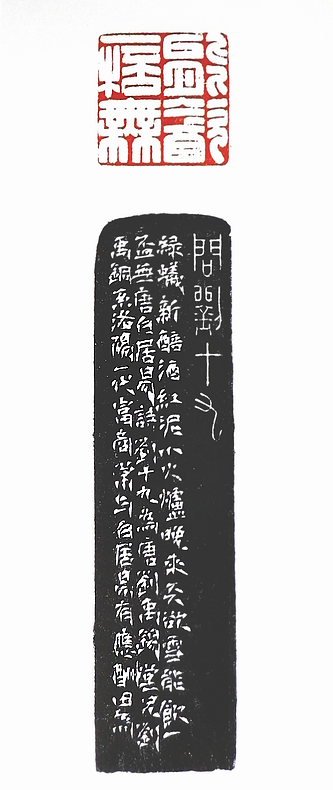 能飲
一桮無
問劉十九
綠蟻新醅酒紅泥小火爐晚來天欲雪能飲一
盃無唐白居易註劉十九為唐劉禹錫堂兄劉
禹銅系洛陽一代富商常与白居易有應酬